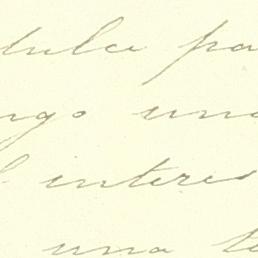 dulce pa
ngo una
l interes
una te